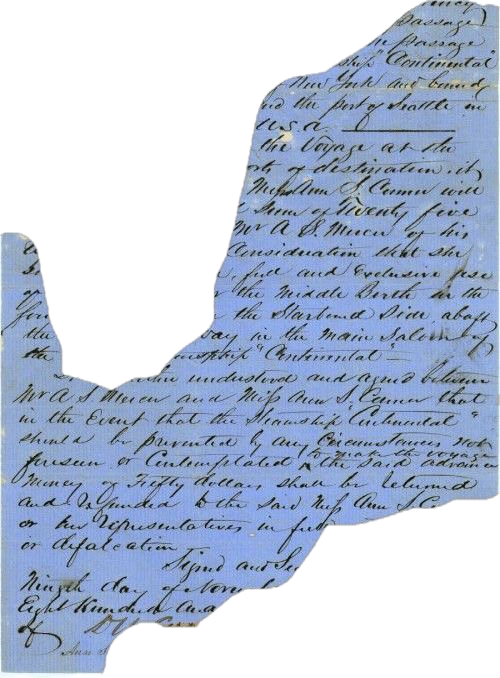 passage
passage
ship "Continental"
New York and bound
and the port of Seattle in
U.S.A.
the Voyage at the
of destination it
Miss Ann S. Conner will
sum of Twenty five
Mr A. S. Mercer of his
Consideration that she
full and Exclusive use
the Middle Berth in the
the Starboard Side abaft
the way in the main Saloon of
the ship "Continental" —
understood and agreed between
Mr A S Mercer and Miss Ann S. Conner that
in the Event that the Steamship "Continental"
should be prevented by any Circumstances not
foreseen or Contemplated to make the voyage the said advance
money of Fifty dollars shall be returned
and refunded to the said Miss Ann S. Co
or her representatives in full
or defalcation
Signed and Se
Ningth day of Novem
Eight Hundred and
of
Ann S